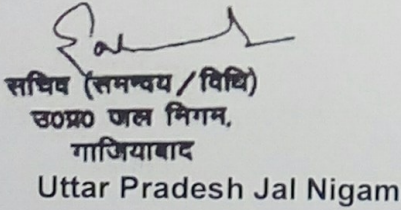 सचिव (समन्वय / विधि)
उ०प्र० जल निगम,
गाजियाबाद
Uttar Pradesh Jal Nigam